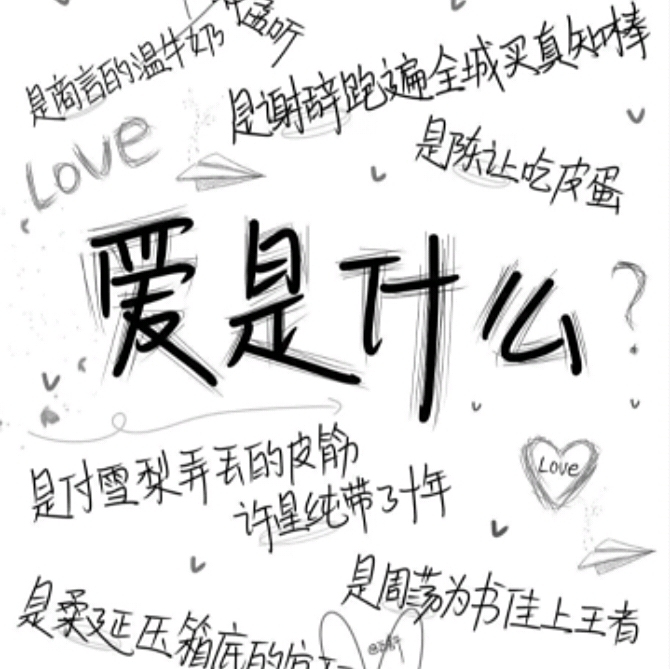 孟听
是商言的温牛奶
是谢辞跑遍全城买真知棒
Love
是陈让吃皮蛋
爱是什么?
是付雪梨弄丢的皮筋
许星纯带了十年
Love
是周荡为书佳上王者
是柔延压箱底的